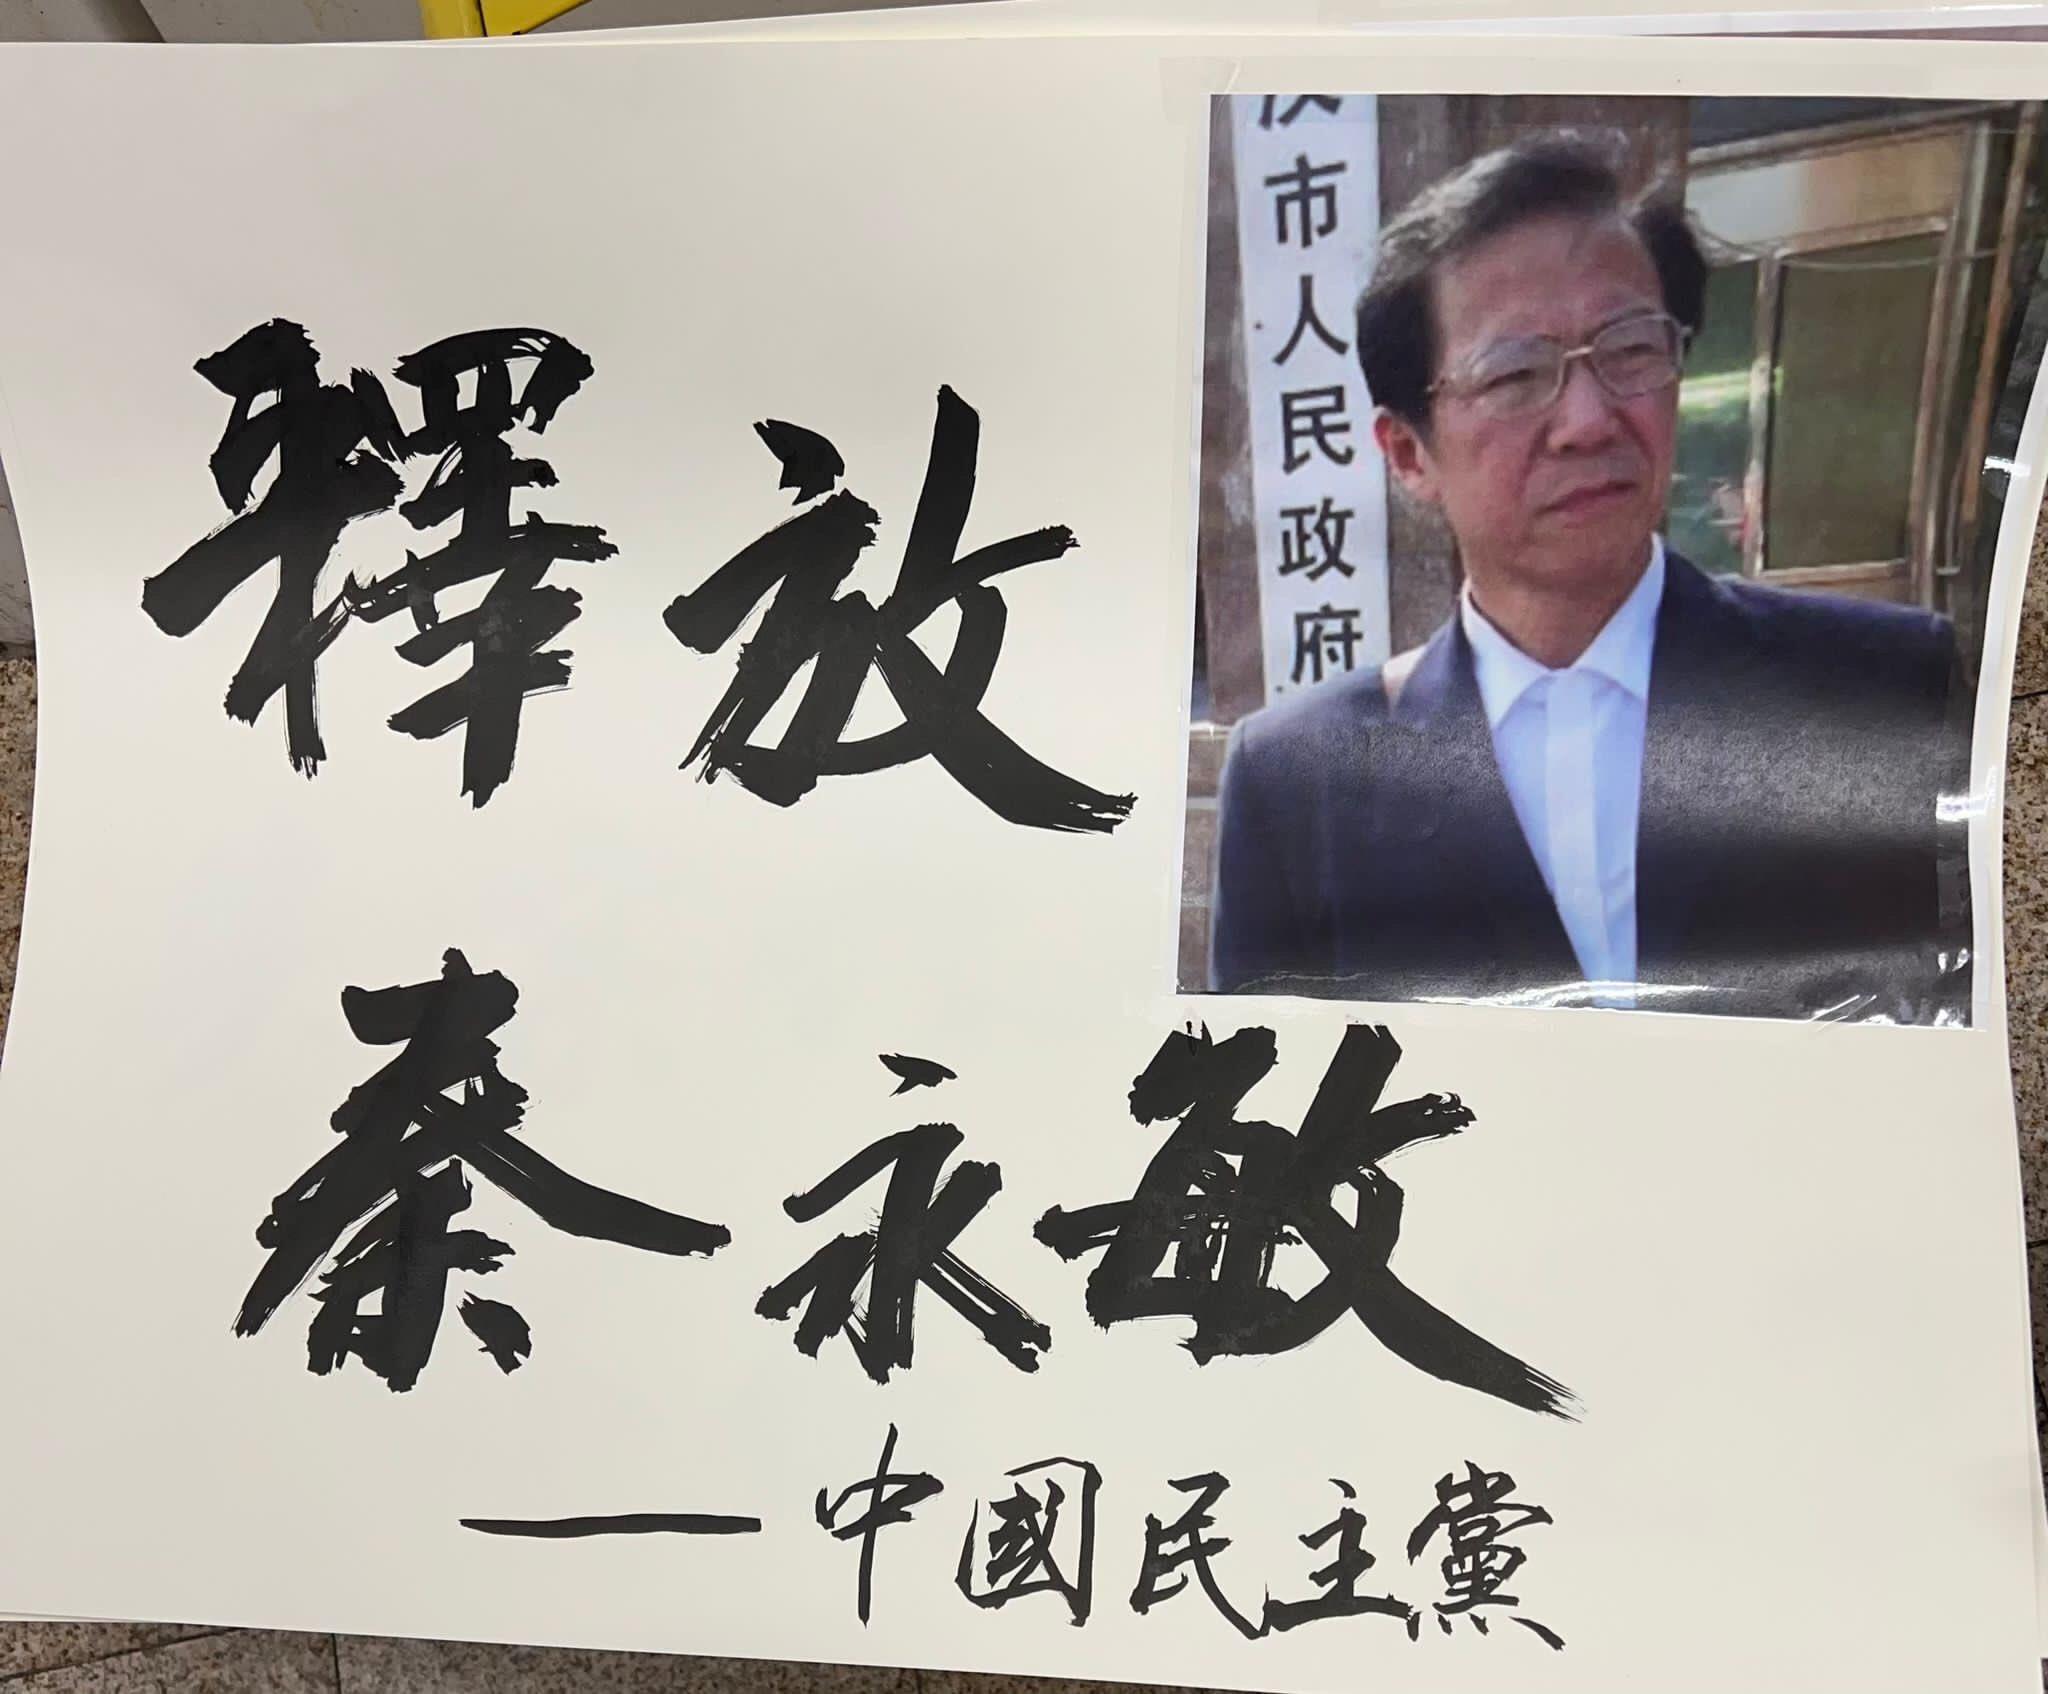 釋放
秦永敏
——中國民主黨
汉市人民政府